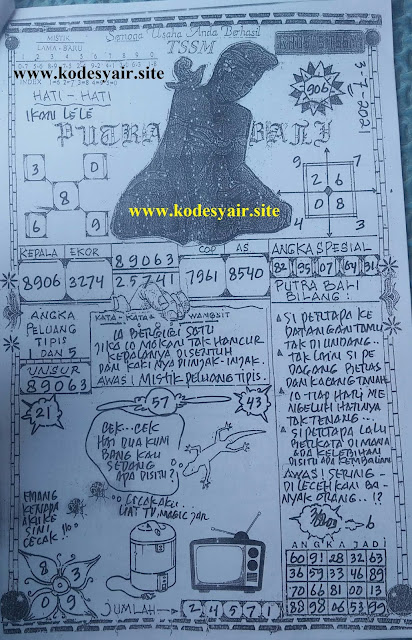 Semoga Usaha Anda Berhasil
TSSM
MISTIK
LAMA - BARU
www.kodesyair.site
HATI - HATI
IKAN LELE
PUTRA BALI
906
3-7-2021
3 0
8
6 9
9 7
2 6
0 8
4 3
www.kodesyair.site
KEPALA EKOR
8906 3274
89063
25741
COP AS
7961 8540
ANGKA SPESIAL
82 95 07 64 31
ANGKA
PELUANG
TIPIS
1 DAN 5
UNSUR
89063
KATA - KATA WANGSIT
IA BERGIGI SATU
JIKA IA MAKAN TAK HANCUR
KEPALANYA DISENTUH
DAN KAKINYA DIINJAK-INJAK.
AWAS! MISTIK PELUANG TIPIS.
PUTRA BALI
BILANG:
SI PERTAPA KE
DATANGAN TAMU
TAK DIUNDANG..
TAK LAIN SI PE
DAGANG BERAS
DAN KACANG TANAH
10 TIAP HARI ME
NGELUH HATINYA
TAK TENANG...
SI PERTAPA LALU
BERKATA DI MANA
ADA KELEBIHAN
DISITU ADA KEMBALIAN
AWAS! SERING
DI LECEHKAN BA-
NYAK ORANG..!?
21
57
43
CEK...CEK
HAI DUA KUNI
BANG KAU
SEDANG
APA DISITU?
EMANG
KENAPA
AKU KE
SINI,
CECAK!!
CECAK AKU..
LIAT TV, MAGIC JAR
8 3
0 9
JUMLAH 24571
6
ANGKA JADI
60 91 28 32 63
36 59 33 46 89
70 66 81 00 13
88 98 06 53 99